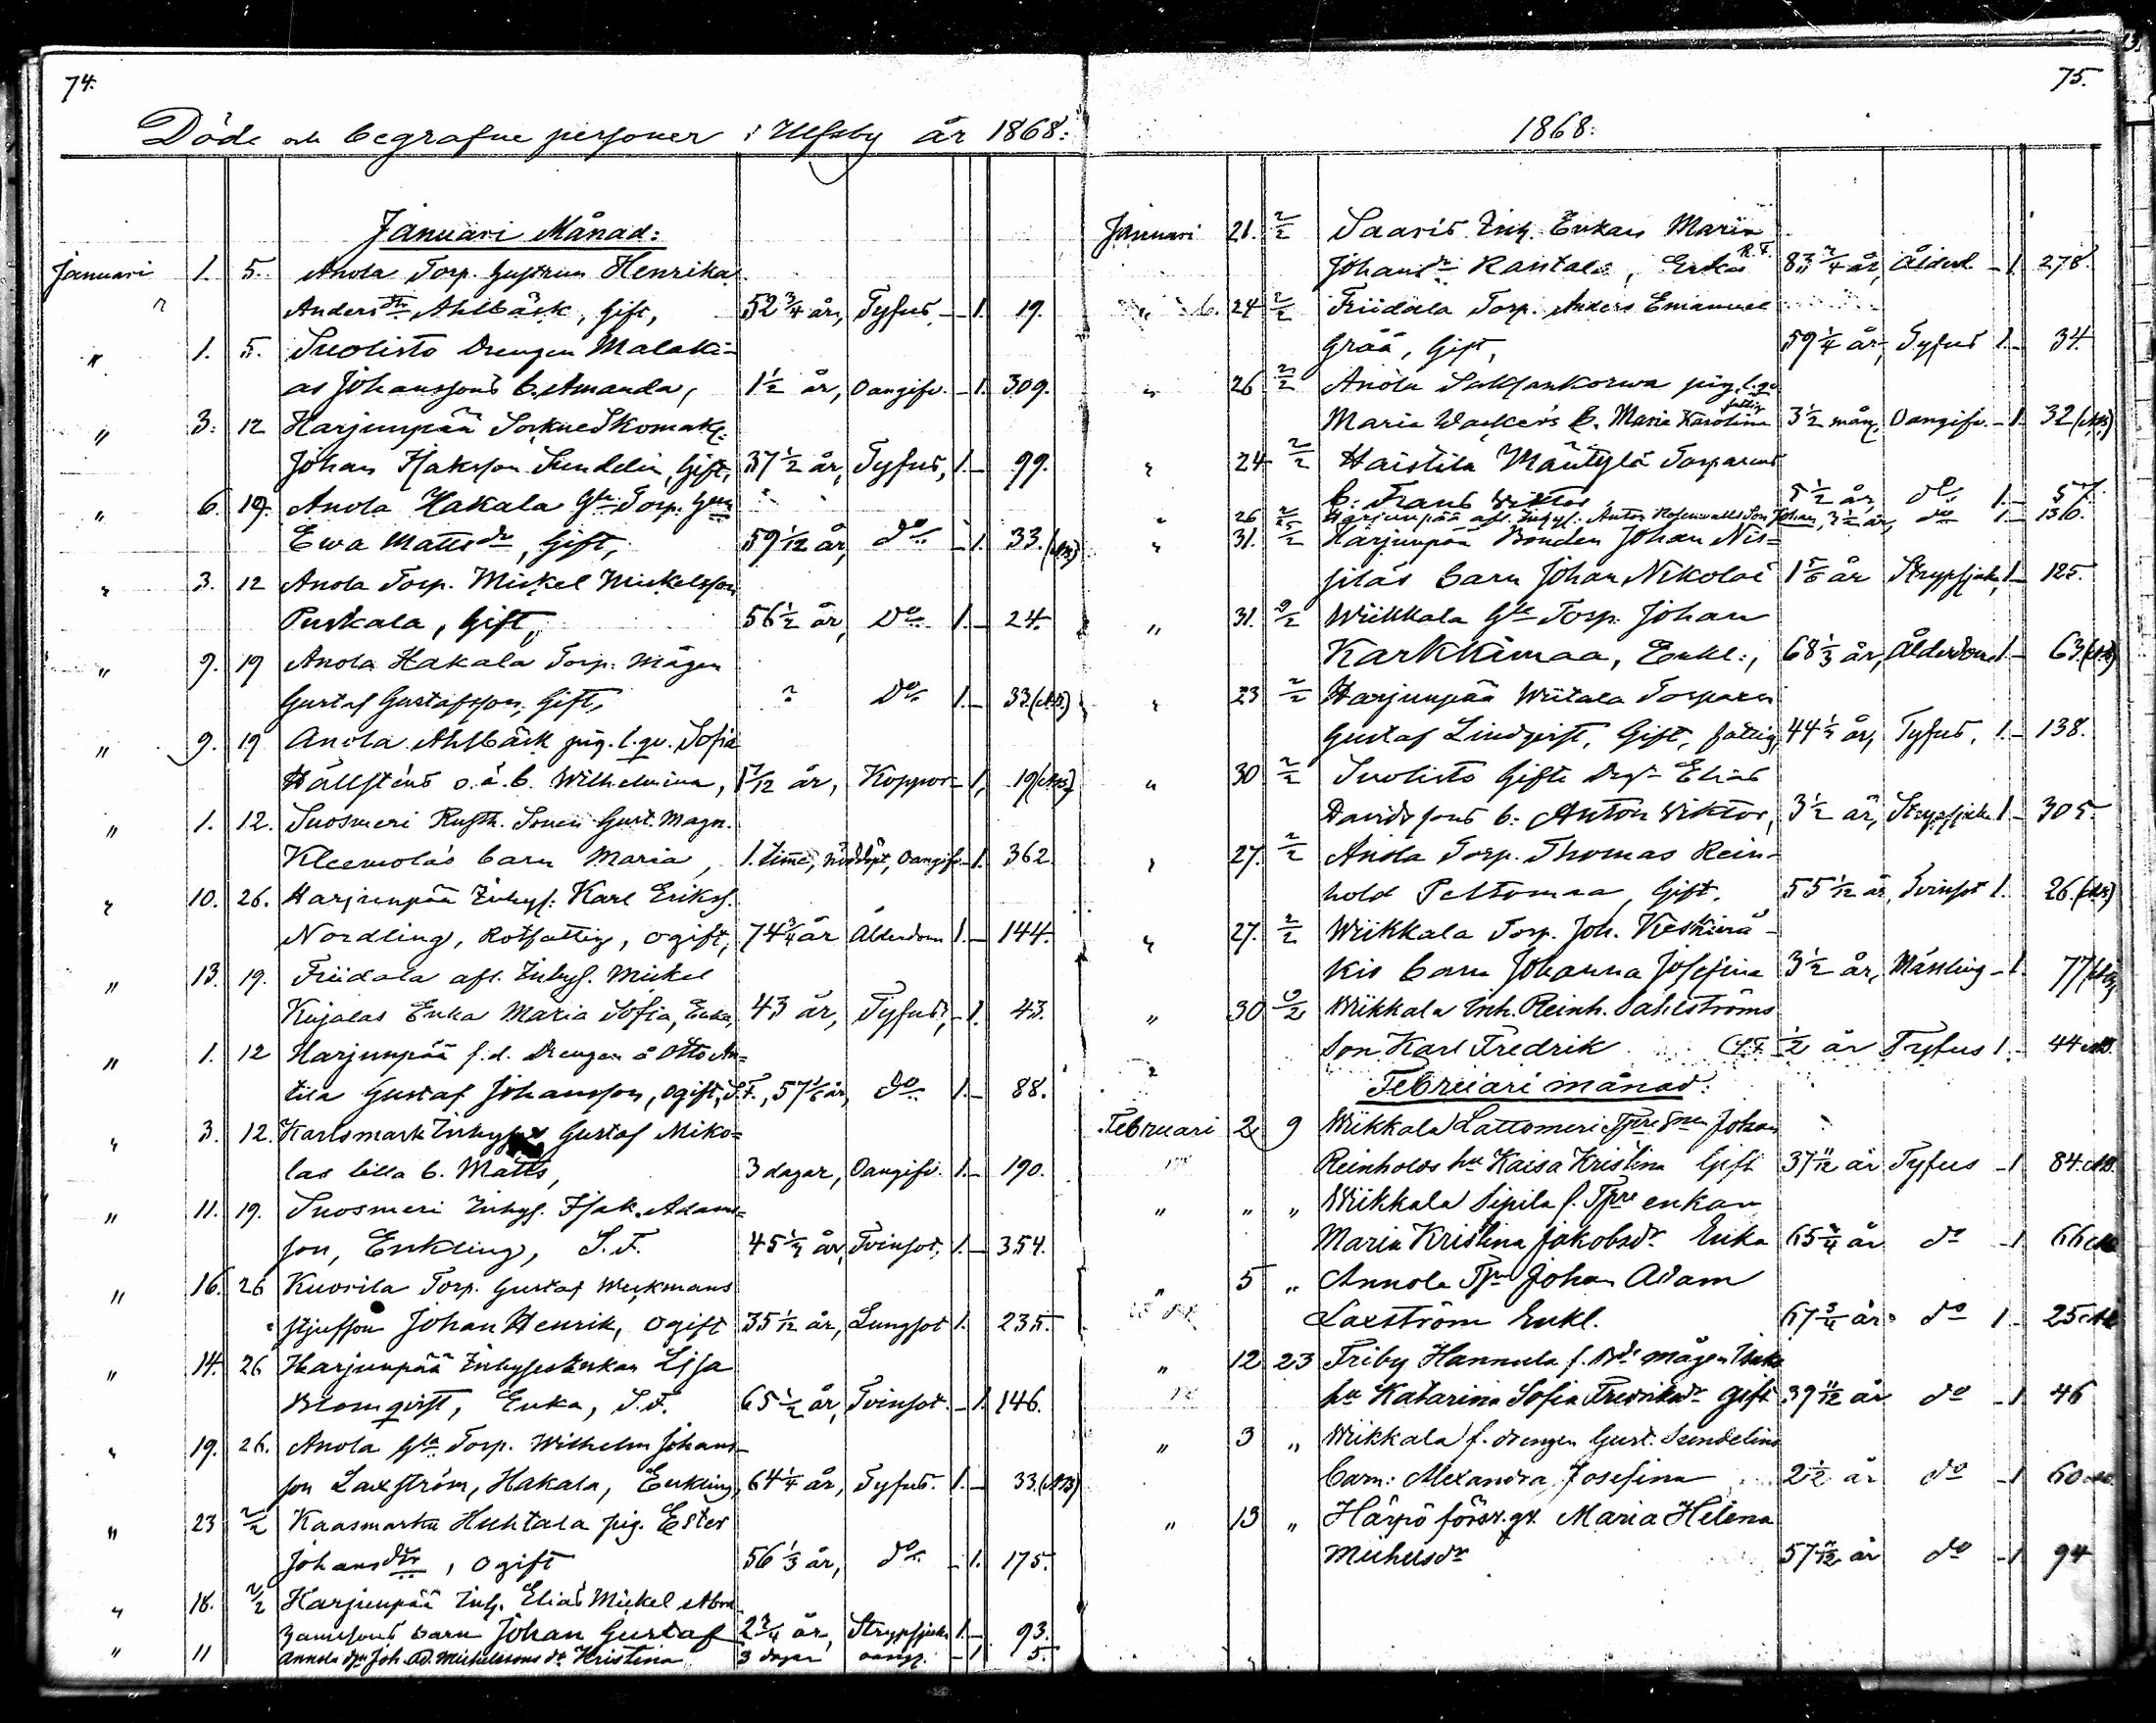 74.
Döde och begrafne personer i Ulfsby år 1868:
Januari Månad:
Januari 1. 5. Anola Torp. hustrun Henrika
Andersdtr Ahlbäck, Gift, 52 3/4 år, Tyfus, - 1. 19.
" 1. 5. Suolisto Drengen Malaki-
as Johanssons b. Amanda, 1 1/2 år, Oangifv. - 1. 309.
" 3. 12 Harjunpää Sockneskomak.
Johan Isaksson Sundelin, Gift, 37 1/2 år, Tyfus, 1. - 99.
" 6. 19. Anola Hakala Gla Torp.
Ewa Mattsdr, Gift, 59 1/12 år, do - 1. 33.
" 3. 12 Anola Torp. Mickel Mickelsson
Puskala, Gift, 56 1/2 år, Do 1. - 24.
" 9. 19 Anola Hakala Torp. mågen
Gustaf Gustafsson, Gift, " Do 1. - 33
" 9. 19 Anola Ahlbäck pig. l.qv. Sofia
Hällsténs o.ä.b. Wilhelmina, 1 7/12 år, Koppor - 1. 19
" 1. 12. Suosmeri Rusth. Sonen Gust. Magn.
Kleemolas barn Maria, 1. timme, nöddöpt, Oangifv. - 1. 362.
" 10. 26. Harjunpää Inhys. Karl Eriks.
Nordling, Rotfattig, ogift, 74 3/4 år Ålderdom 1. - 144.
" 13. 19. Friidala afl. Inhys. Mickel
Kujalas Enka Maria Sofia, Enka, 43 år, Tyfus, - 1. 43.
" 1. 12 Harjunpää f.d. Drengen å Otto An-
tila Gustaf Johansson, ogift, S.F., 57 år, do 1. - 88.
" 3. 12. Karlsmark Gustaf Miko-
las lilla b. Matts, 3 dagar, Oangifv. 1. - 190.
" 11. 19. Suosmeri Inhys. Isak Adams-
son, Enkling, S.F. 45 1/2 år, Tvinsot, 1. - 354.
" 16. 26 Kuorila Torp. Gustaf Weckmans
stjufson Johan Henrik, ogift 35 1/12 år, Lungsot 1. 235.
" 14. 26 Harjunpää Inhysesenkan Lisa
Blomqvist, Enka, S.F. 65 1/2 år, Tvinsot. - 1. 146.
" 19. 26. Anola Gla Torp. Wilhelm Johans-
son Laxström, Hakala, Enkling, 64 1/4 år, Tyfus. 1. - 33.
" 23 2/2 Kaasmarku Huhtala pig. Ester
Johansdtr, ogift 56 1/3 år, do - 1. 175.
" 18. 2/2 Harjunpää Inh. Elias Mickel Abra
hamsons barn Johan Gustaf 2 3/4 år, Strypsjuka 1. - 93.
" 11 Annola Joh. Ad. Michelssons dr Kristina 3 dagar oangf. - 1 5.
75.
1868:
Januari 21. 2/2 Saaris Inh. Enkan Maria
Johansdr Rantala, Enka R.F. 83 3/4 år, Ålderd. - 1. 278.
" 24 2/2 Friidala Torp. Anders Emanuel
Grää, Gift, 59 1/4 år, Tyfus 1. - 34.
" 26 2/2 Anola Saksankorwa pig. l.qv
Maria Wackers b. Maria Karolina fattig 3 1/2 mån. Oangifv. - 1. 32
" 24 2/2 Haistila Mäntylä Torparens
b: Frans Wiktor 5 1/2 år, do 1. - 57.
" 26 2/2 Harjunpää afl. Inhys. Anton Rosenwalls Son Johan, 3 1/2 år, do 1 - 136.
" 31. 2/2 Harjunpää Bonden Johan Nis-
silas barn Johan Nikolai 1 5/6 år Strypsjuka, 1. - 125.
" 31. 9/2 Wiikkala Gla Torp. Johan
Karkkimaa, Enkl., 68 1/3 år, Ålderdom 1. - 63.
" 23 2/2 Harjunpää Wiitala Torparen
Gustaf Lindqvist, Gift, fattig, 44 1/2 år, Tyfus, 1. - 138.
" 30 2/2 Suolisto Gifte Drg. Elias
Davidssons b. Anton Wiktor, 3 1/2 år, Strypsjuka 1 - 305.
" 27. 2/2 Anola Torp. Thomas Rein-
hold Peltomaa, Gift, 55 1/12 år, Tvinsot 1. 26.
" 27. 2/2 Wiikkala Torp. Joh. Keskinä-
kis barn Johanna Josefina 3 1/2 år, Mässling - 1. 77
" 30 9/2 Wiikkala Inh. Reinh. Sahlströms
Son Karl Fredrik 1/2 år Tyfus 1. - 44
Februari månad:
Februari 2 9 Wiikkala Lattomeri Johan
Reinholds hu Kaisa Kristina Gift 37 11/12 år Tyfus - 1 84.
" " " Wiikkala Sipila f. Tpre enkan
Maria Kristina Jakobsdr Enka 65 3/4 år do - 1 66
" 5 " Annola Tpn Johan Adam
Laxström Enkl. 67 3/4 år do 1 - 25
" 12 23 Friby Hannula f. Bde mågen Isaks
hu Katarina Sofia Fredriksdr gift 39 11/12 år do - 1 46
" 3 " Wiikkala f. drengen Gust. Sundelins
barn: Alexandra Josefina 2 1/2 år do - 1 60
" 13 " Härpö Maria Helena
Michelsdr 57 11/12 år do - 1 94